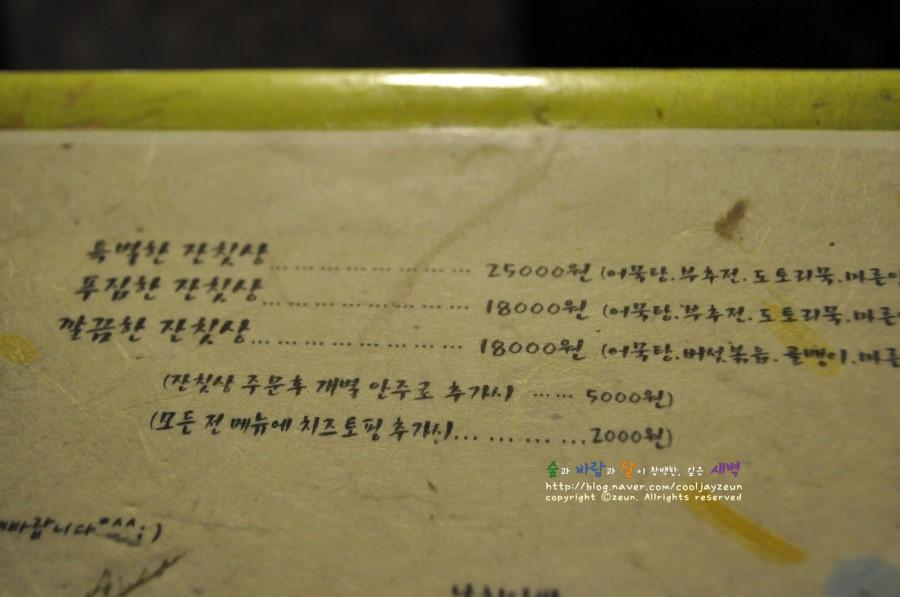 특별한 잔칫상 ... ... ... ... ... ... ... 25000원 (어묵탕.부추전.도토리묵.마른안
푸짐한 잔칫상 ... ... ... ... ... ... ... 18000원 (어묵탕.부추전.도토리묵.마른
깔끔한 잔칫상 ... ... ... ... ... ... ... 18000원 (어묵탕.버섯볶음.골뱅이.마른
(잔칫상 주문후 개별 안주로 추가시 ... ... 5000원)
(모든 전 메뉴에 치즈토핑 추가시... ... ... ... ...2000원)
숲과 바람과 달이 창백한, 깊은 새벽
http://blog.naver.com/cooljayzeun
copyright ⓒzeun. Allrights reserved
바랍니다*^^;)